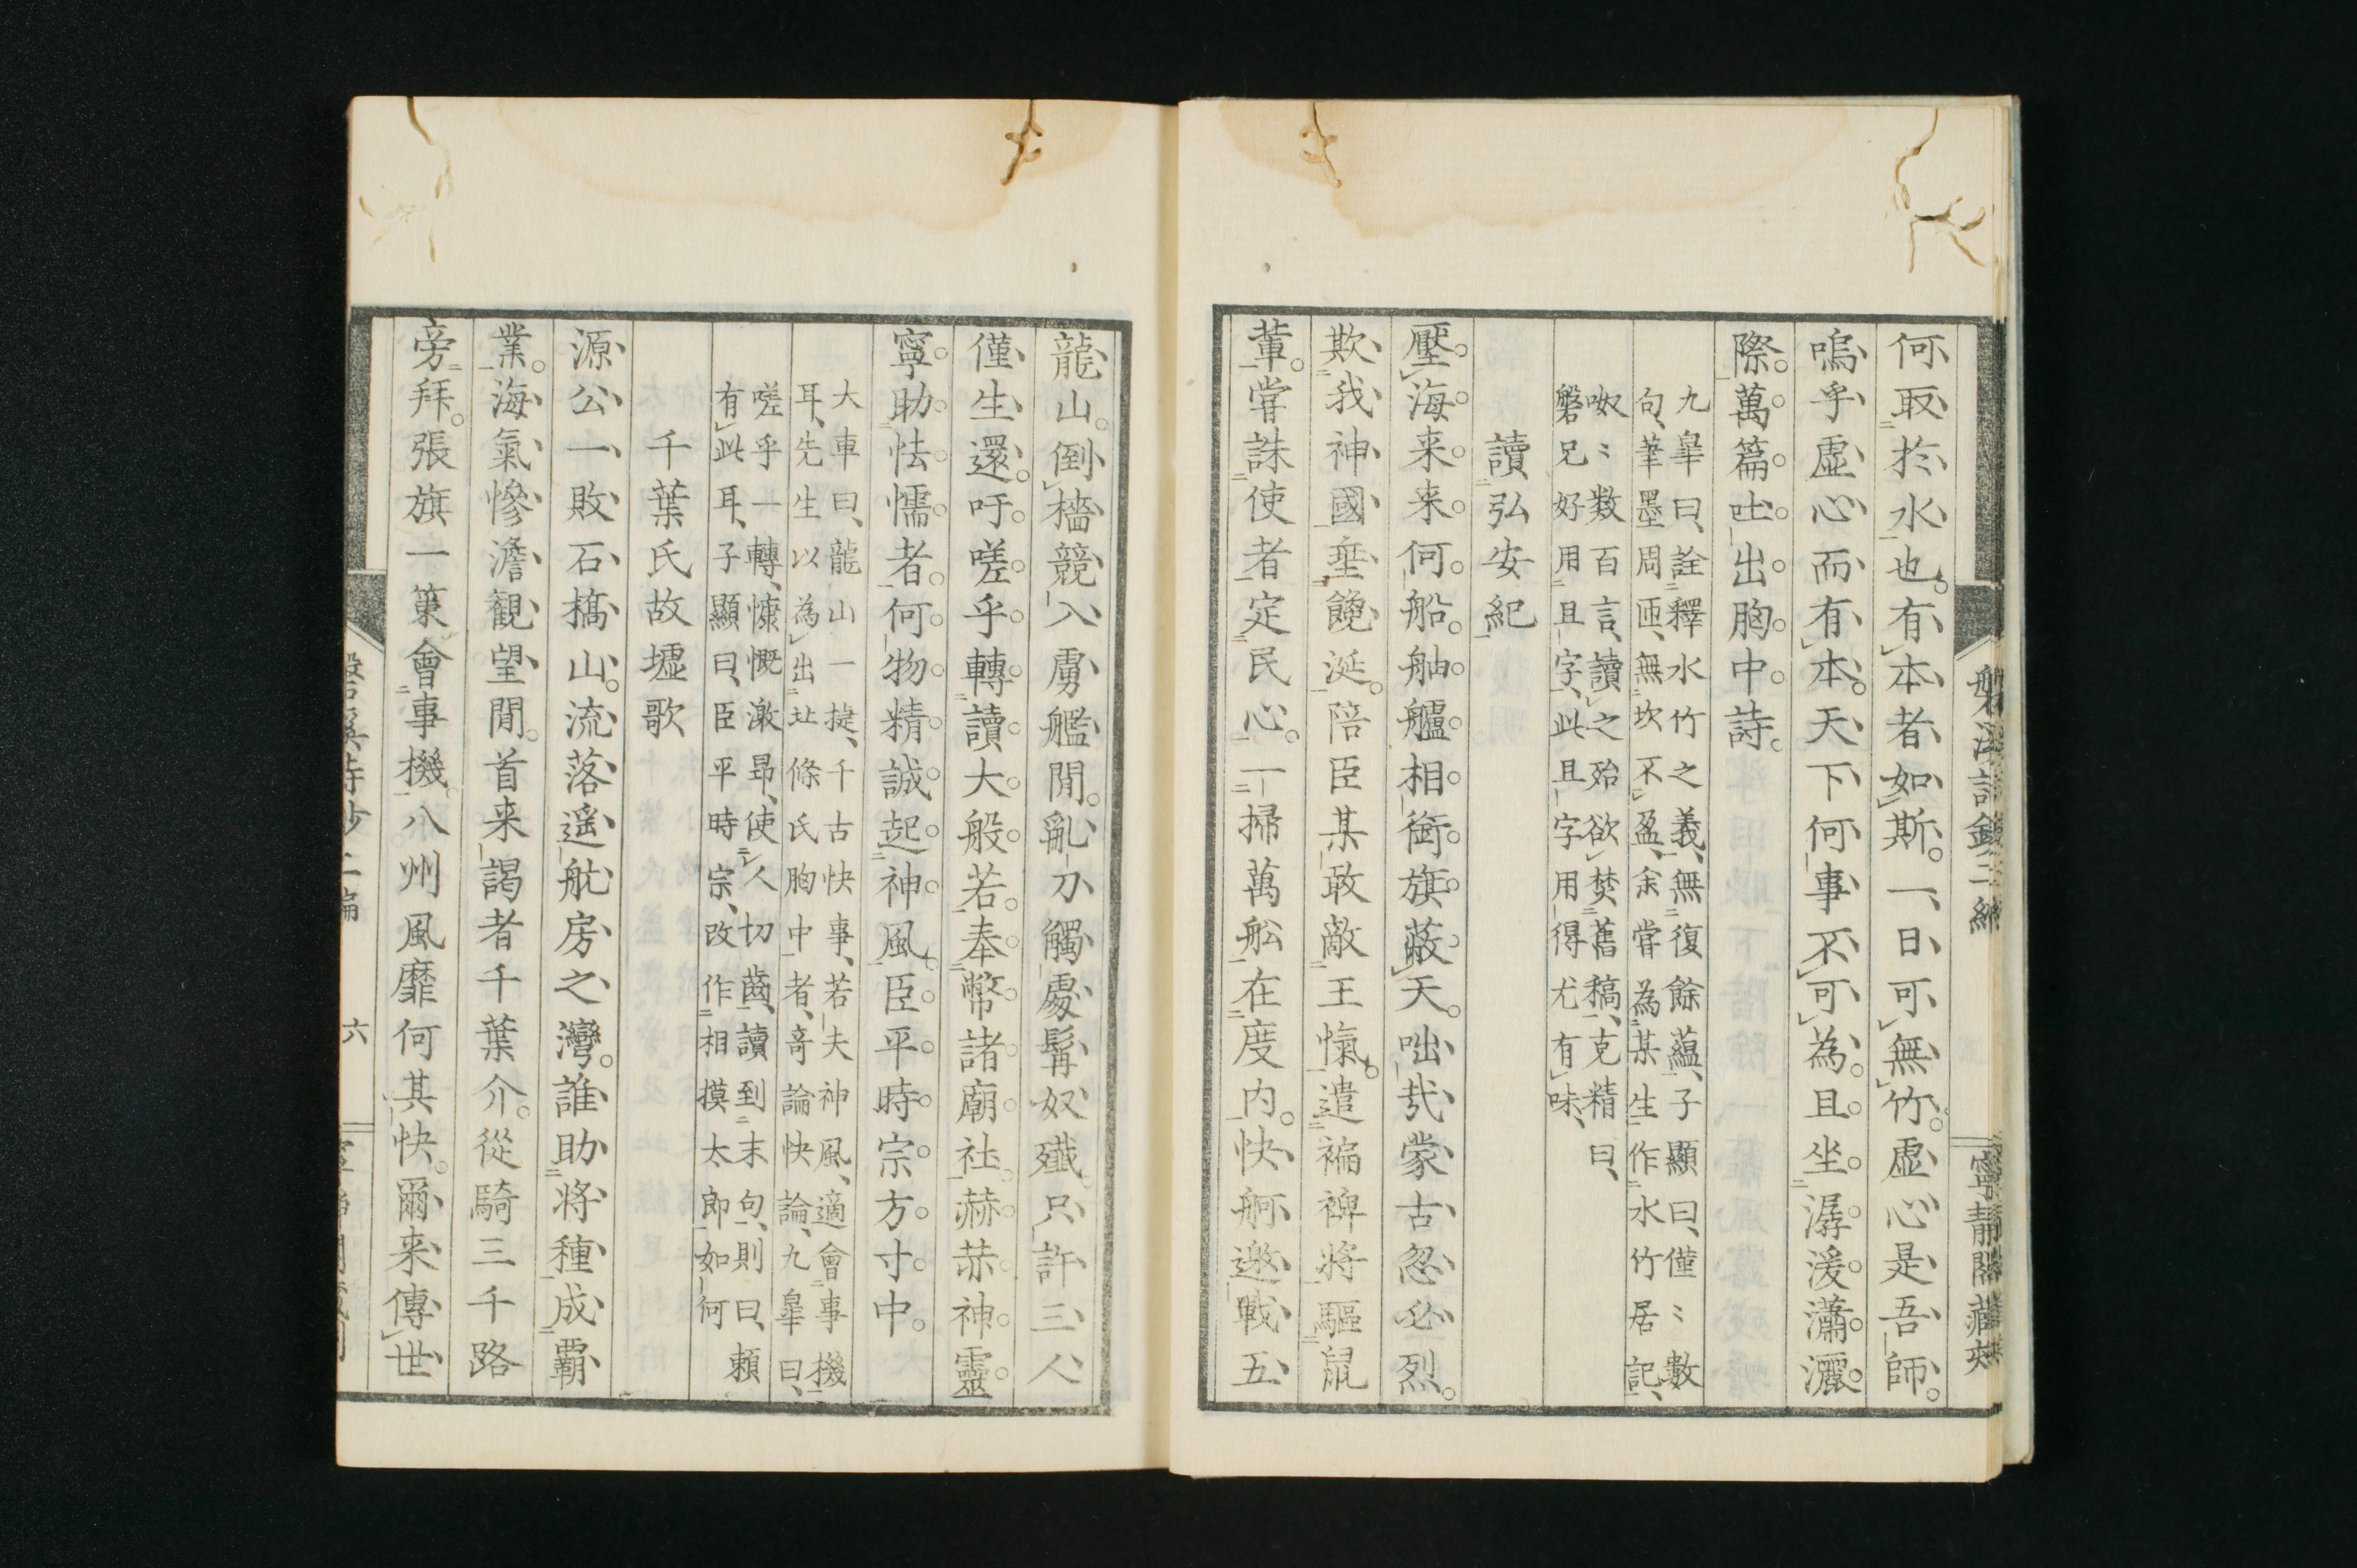 何取於水也有本者如斯一日可無竹虛心是吾師
嗚乎虛心而有本天下何事不可為且坐潺湲瀟灑
際萬篇吐出胸中詩
九皐曰詮釋水竹之義無復餘蘊子顯曰僅〻數
句筆墨周匝無坎不盈余嘗為某生作水竹居記
呶〻数百言讀之殆欲焚舊稿克精曰
磐兄好用且字此且字用得尤有味
讀弘安紀
壓海来来何船舳艫相銜旗蔽天咄哉蒙古忽必烈
欺我神國垂饞涎陪臣某敢敵王愾遣褊裨將驅鼠
輩嘗誅使者定民心一掃萬舩在度内快舸邀戰五
寧靜閣藏梓
龍山倒檣競入虜艦閒亂刀觸處髯奴殲只許三人
僅生還吁嗟乎轉讀大般若奉幣諸廟社赫赫神靈
寧助怯懦者何物精誠起神風臣平時宗方寸中
大車曰龍山一捷千古快事若夫神風適會事機
耳先生以為出北條氏胸中者奇論快論九皐曰
嗟乎一轉慷慨激昂使人切齒讀到末句則曰賴
有此耳子顯曰臣平時宗改作相摸太郎如何
千葉氏故墟歌
源公一敗石橋山流落遥航房之灣誰助將種成覇
業海氣惨澹觀望閒首来謁者千葉介從騎三千路
旁拜張旗一策會事機八州風靡何其快爾来傳世
六